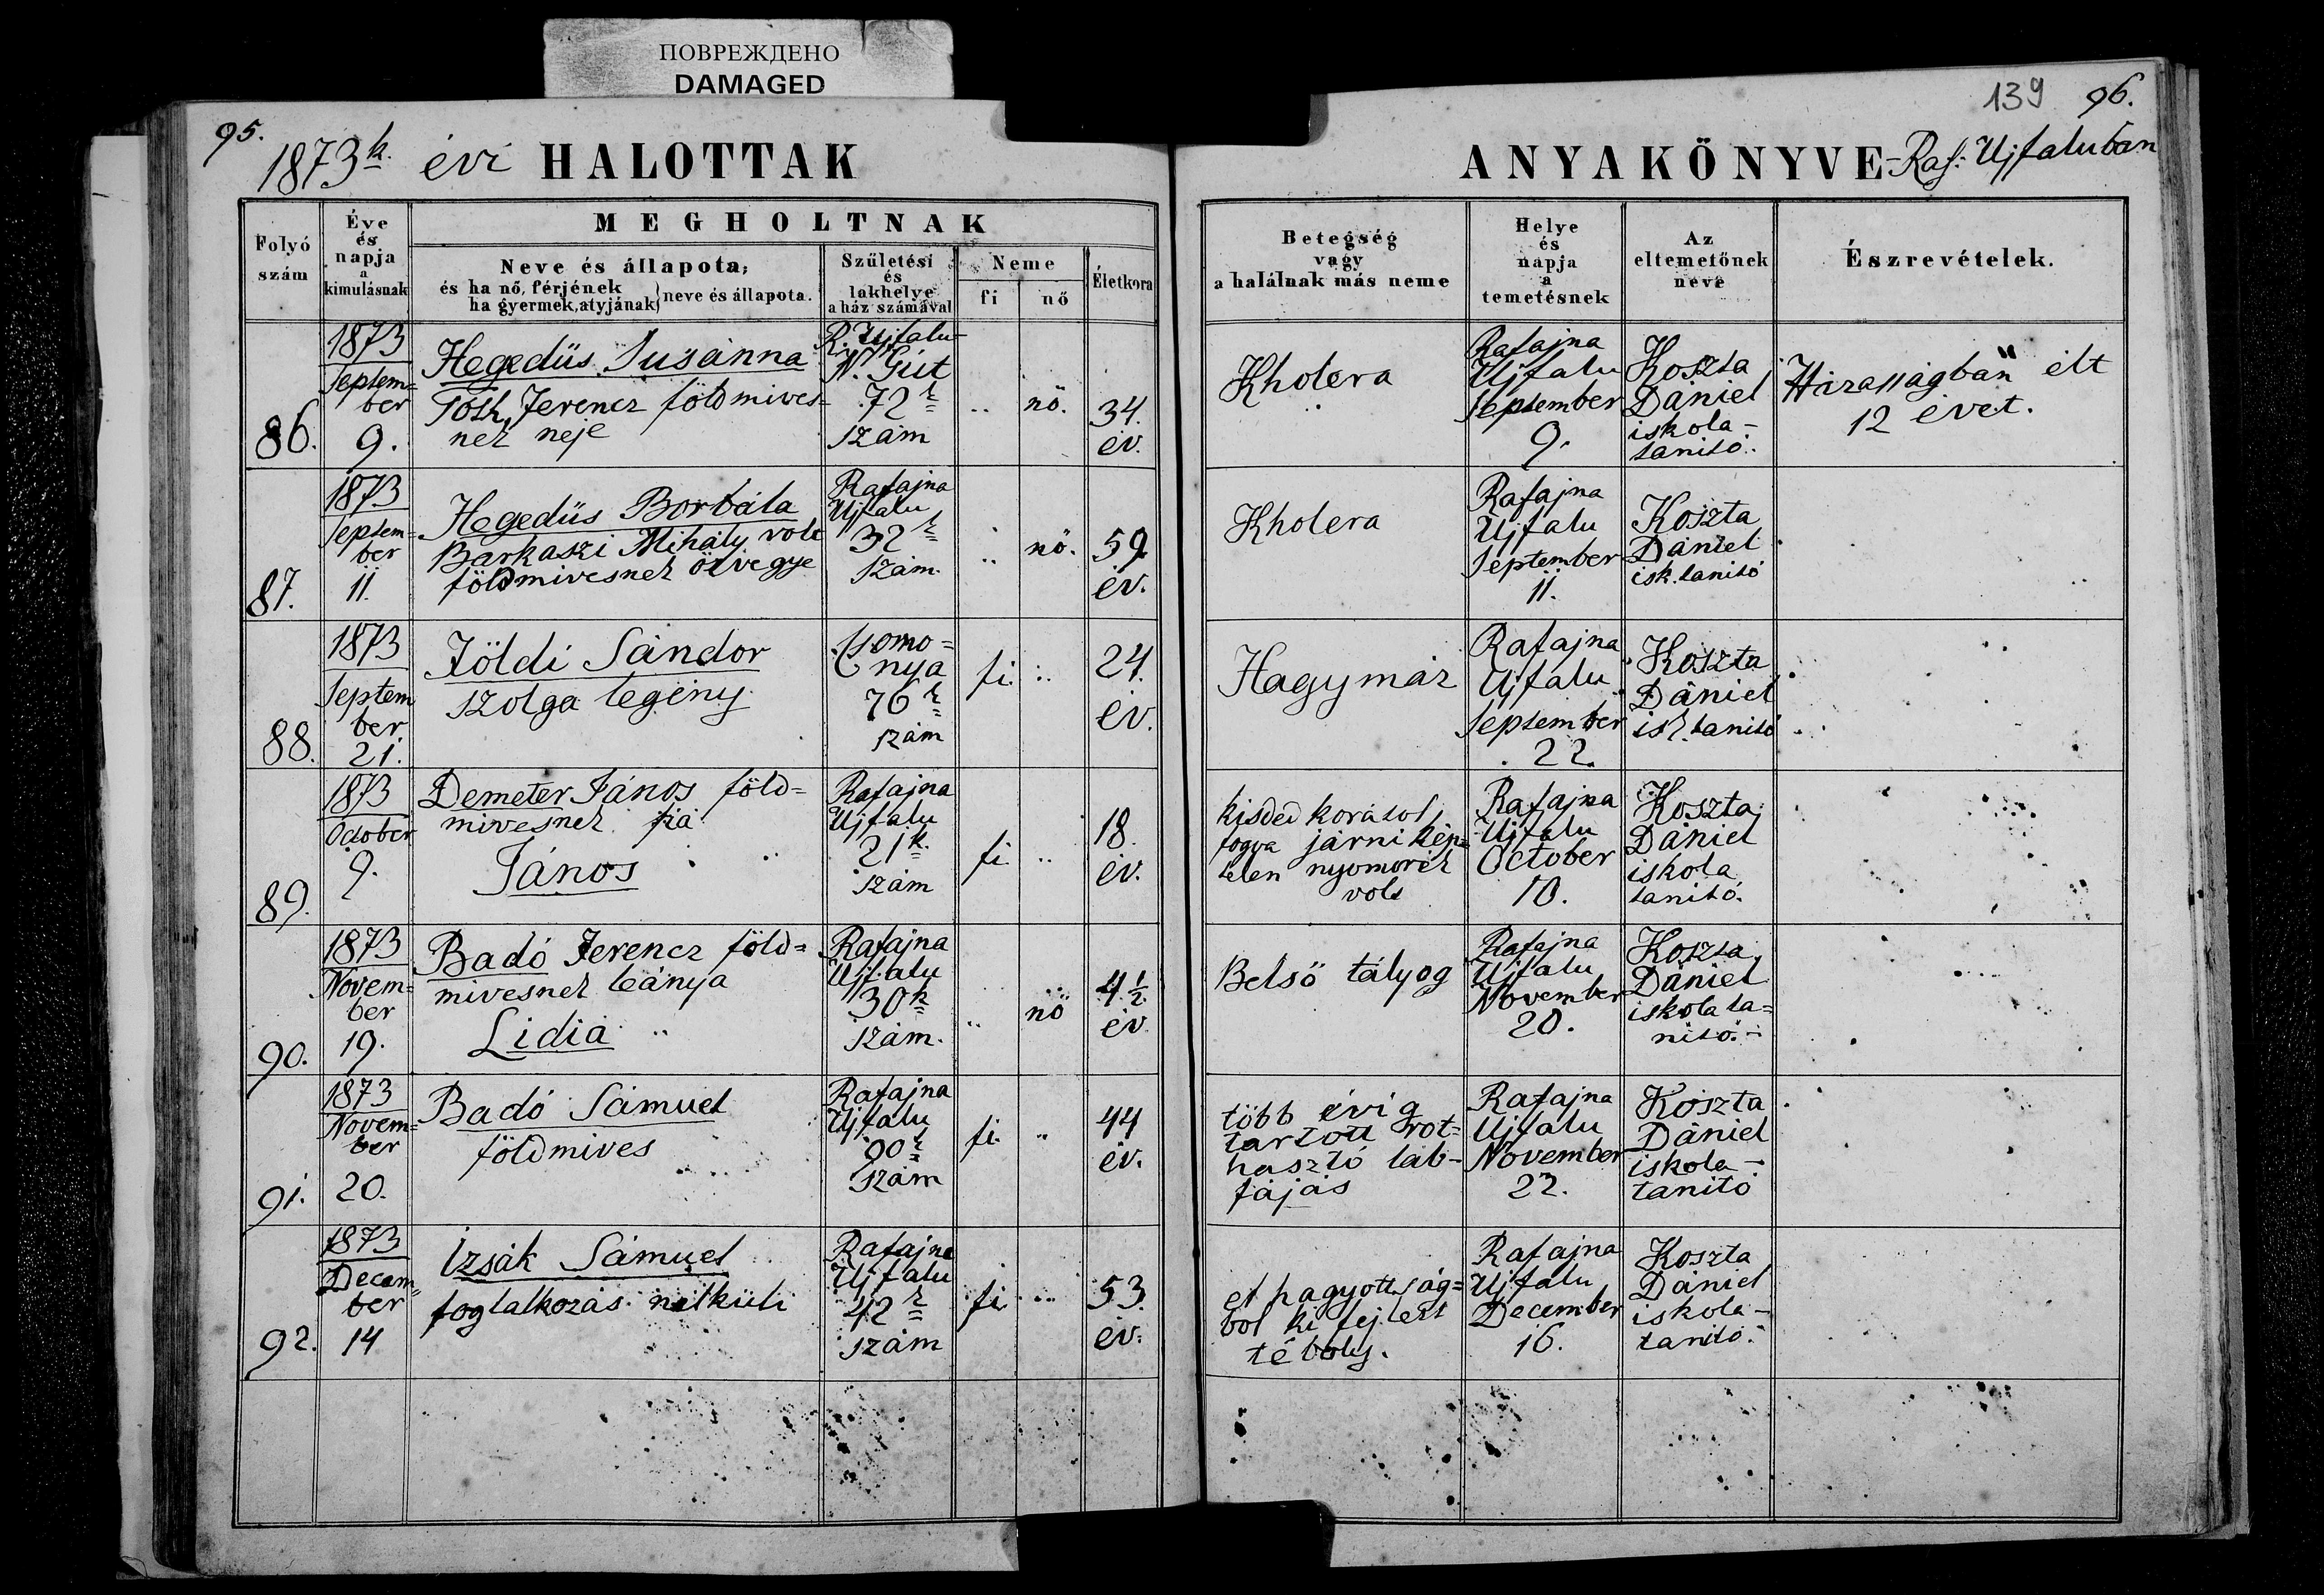 ПОВРЕЖДЕНО
DAMAGED
95.
1873k. évi HALOTTAK
Folyó
szám
Éve
és
napja
a
kimulásnak
MEGHOLTNAK
Neve és állapota,
és ha nő, férjének
ha gyermek, atyjának} neve és állapota.
Születési
és
lakhelye
a ház számával
Neme
fi
nő
Életkora
86.
1873
Septem=
ber
9.
Hegedüs Susánna
Tóth Ferencz földmives=
nek neje
R. Ujfalu
N. Gút
72k
szám
..
nő.
34.
év.
87.
1873
Septem=
ber
11.
Hegedüs Borbála
Barkaszi Mihály volt
földmivesnek özvegye
Rafajna
Ujfalu
32k
szám.
..
nő.
59
év.
88.
1873
Septem
ber
21.
Földi Sándor
szolga legény
Csomo=
nya
76k
szám
fi.
..
24.
év.
89.
1873
October
9.
Demeter János föld=
mivesnek fia
János
Rafajna
Ujfalu
21k.
szám
fi.
..
18.
év.
90.
1873
Novem=
ber
19.
Badó Ferencz föld=
mivesnek leánya
Lidia
Rafajna
Ujfalu
30k
szám.
..
nő
4 1/2.
év.
91.
1873
Novem=
ber
20.
Badó Sámuel
földmives
Rafajna
Ujfalu
90k
szám
fi.
..
44
év.
92.
1873
Decem=
ber
14
Izsák Sámuel
foglalkozás nélküli
Rafajna
Ujfalu
42k
szám
fi
..
53.
év.
139 96.
ANYAKÖNYVE - Raf: Ujfaluban
Betegség
vagy
a halálnak más neme
Helye
és
napja
a
temetésnek
Az
eltemetőnek
neve
Észrevételek.
Kholera
Rafajna
Ujfalu
September
9.
Koszta
Dániel
iskola-
tanitó.
Házasságban élt
12 évet.
Kholera
Rafajna
Ujfalu
September
11.
Koszta
Dániel
isk. tanitó
Hagymáz
Rafajna
Ujfalu
September
22.
Koszta
Dániel
isk. tanitó
kisded korától
fogva járni kép=
telen nyomorék
volt
Rafajna
Ujfalu
October
10.
Koszta
Dániel
iskola
tanitó.
Belső tályog
Rafajna
Ujfalu
November
20.
Koszta
Dániel
iskola ta=
nitó.-
több évig
tartott rot=
hasztó láb-
fájás
Rafajna
Ujfalu
November
22.
Koszta
Dániel
iskola-
tanitó
elhagyottság=
ból ki fejlett
téboly.
Rafajna
Ujfalu
December
16.
Koszta
Dániel
iskola-
tanitó.